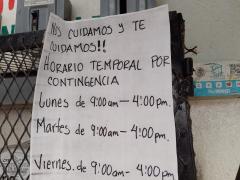 NOS CUIDAMOS Y TE
CUIDAMOS!!
HORARIO TEMPORAL POR
CONTINGENCIA
Lunes de 9:00am - 4:00pm.
Martes de 9:00am - 4:00pm.
Viernes. de 9:00am - 4:00pm.